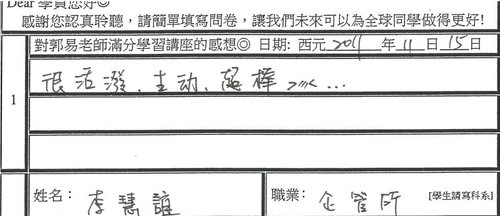 Dear 學員您好☺
感謝您認真聆聽，請簡單填寫問卷，讓我們未來可以為全球同學做得更好!
對郭易老師滿分學習講座的感想☺ 日期: 西元 2011 年 11 日 15 日
1
很活潑、主动、超棒 ...
姓名： 李慧誼 職業： 企管所 [學生請寫科系]